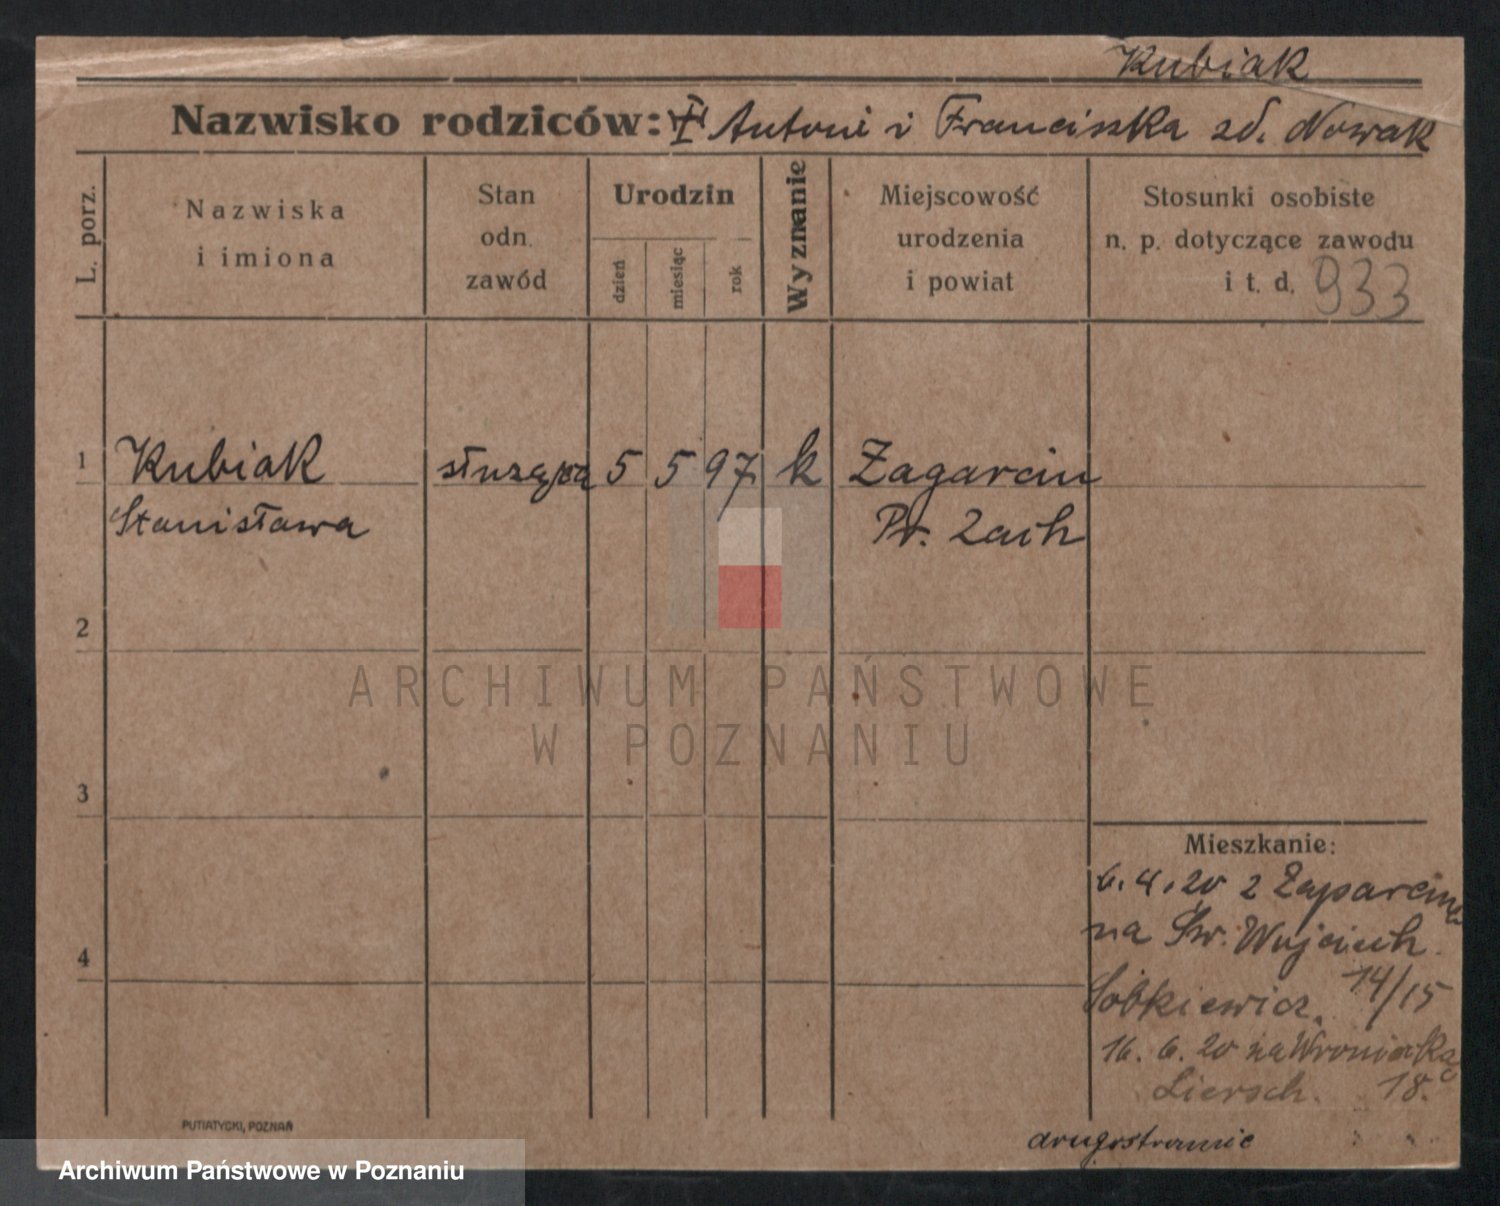 Kubiak
Nazwisko rodziców: Antoni i Franciszka zd. Nowak
L. porz.
Nazwiska
i imiona
Stan
odn.
zawód
Urodzin
dzień
miesiąc
rok
Wyznanie
Miejscowość
urodzenia
i powiat
Stosunki osobiste
n. p. dotyczące zawodu
i t. d. 933
1 Kubiak służąca 5 5 97 k Zagarcin
Stanisława Pr. Zach
2
ARCHIWUM PAŃSTWOWE
W POZNANIU
3
Mieszkanie:
6.4.20 z
na Św. Wojciech
4
Sobkiewicz. 14/15
16. 6. 20 na Wroniecką
Liersch. 18.
PUTIATYCKI, POZNAŃ
drugostronnie
Archiwum Państwowe w Poznaniu